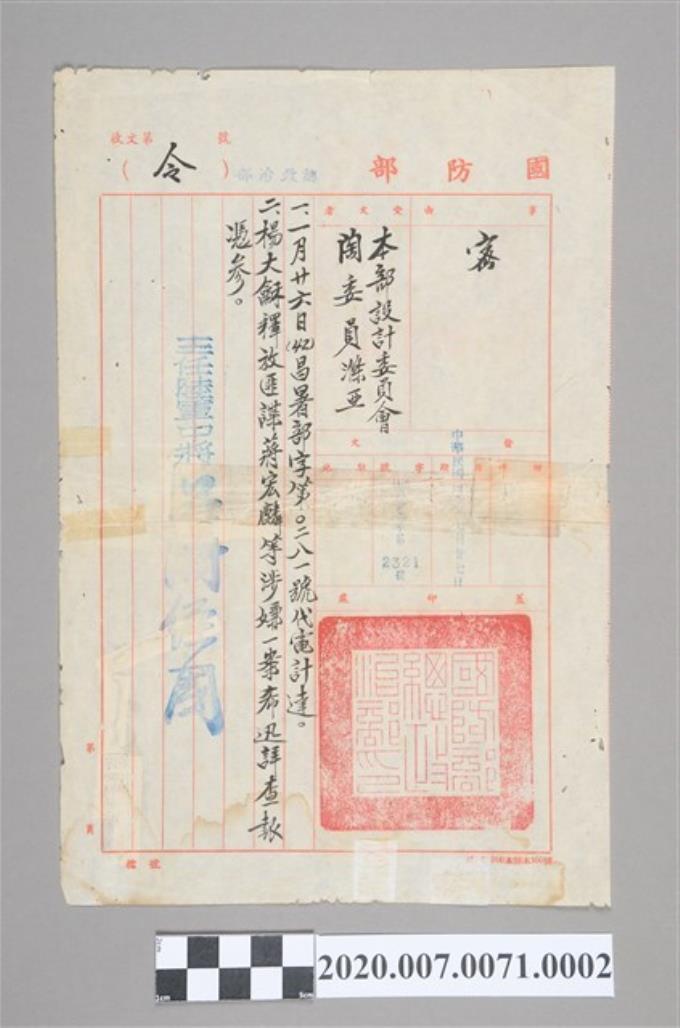 收文第 號
國防部 總政治部 （令）
事由
密
受文者
本部設計委員會
陶委員滌亞
發文
字號
2321
號
蓋印處
國防部總政治部印
一、一月廿六日(42)昌署部字第○二八一號代電計達。
二、楊大穌釋放匪諜蔣宏麟等涉嫌一案希迅詳查報
憑參。
第 頁
檔號
2020.007.0071.0002